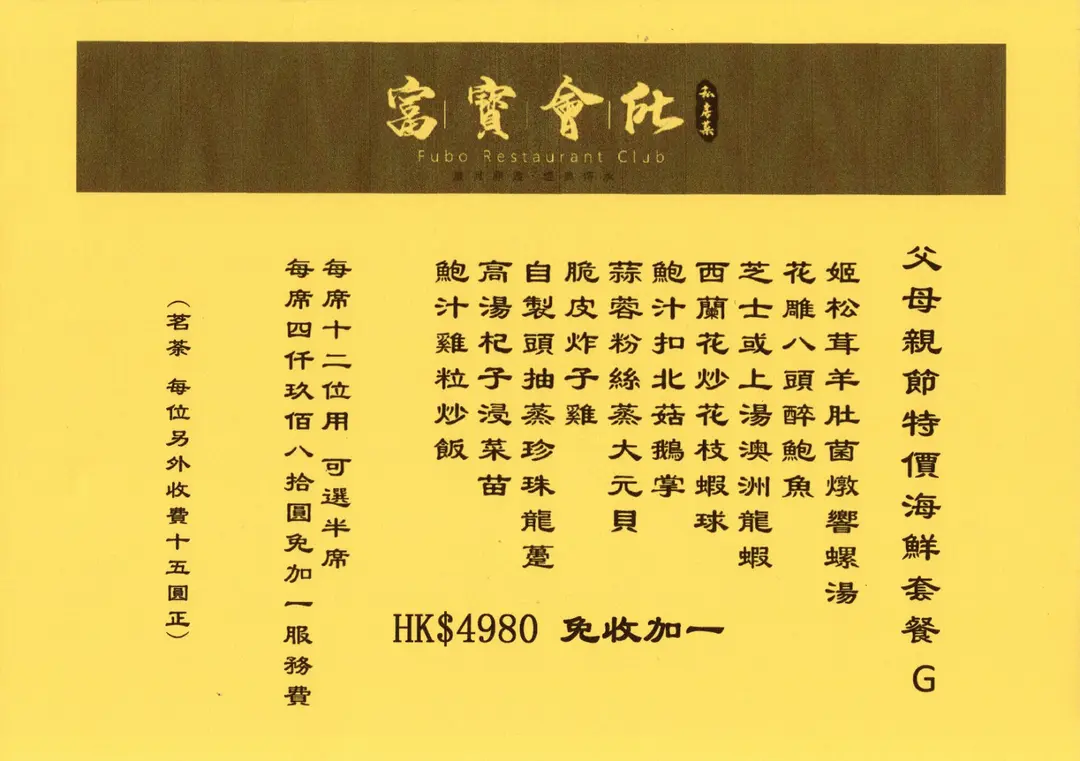 富寶會所
私房菜
Fubo Restaurant Club
父母親節特價海鮮套餐 G
姬松茸羊肚菌燉響螺湯
花雕八頭醉鮑魚
芝士或上湯澳洲龍蝦
西蘭花炒花枝蝦球
鮑汁扣北菇鵝掌
蒜蓉粉絲蒸大元貝
脆皮炸子雞
自製頭抽蒸珍珠龍躉
高湯杞子浸菜苗
鮑汁雞粒炒飯
HK$4980 免收加一
每席十二位用 可選半席
每席四仟玖佰八拾圓免加一服務費
（茗茶 每位另外收費十五圓正）